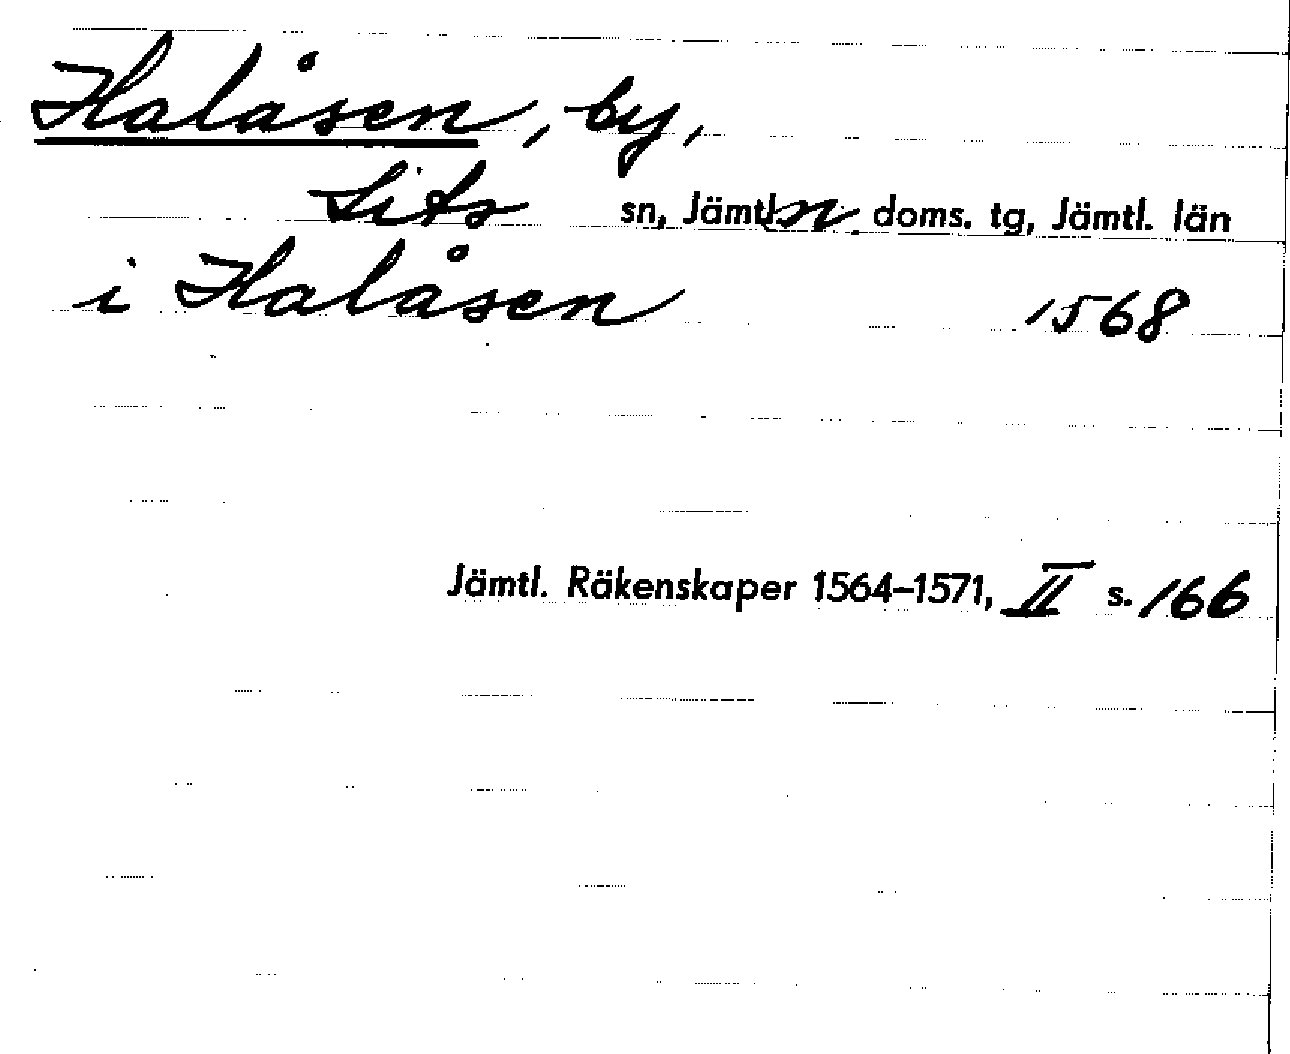 Halåsen, by,
Lits sn, Jämtl.n. doms. tg, Jämtl. län
i Halåsen 1568
Jämtl. Räkenskaper 1564–1571, II s. 166